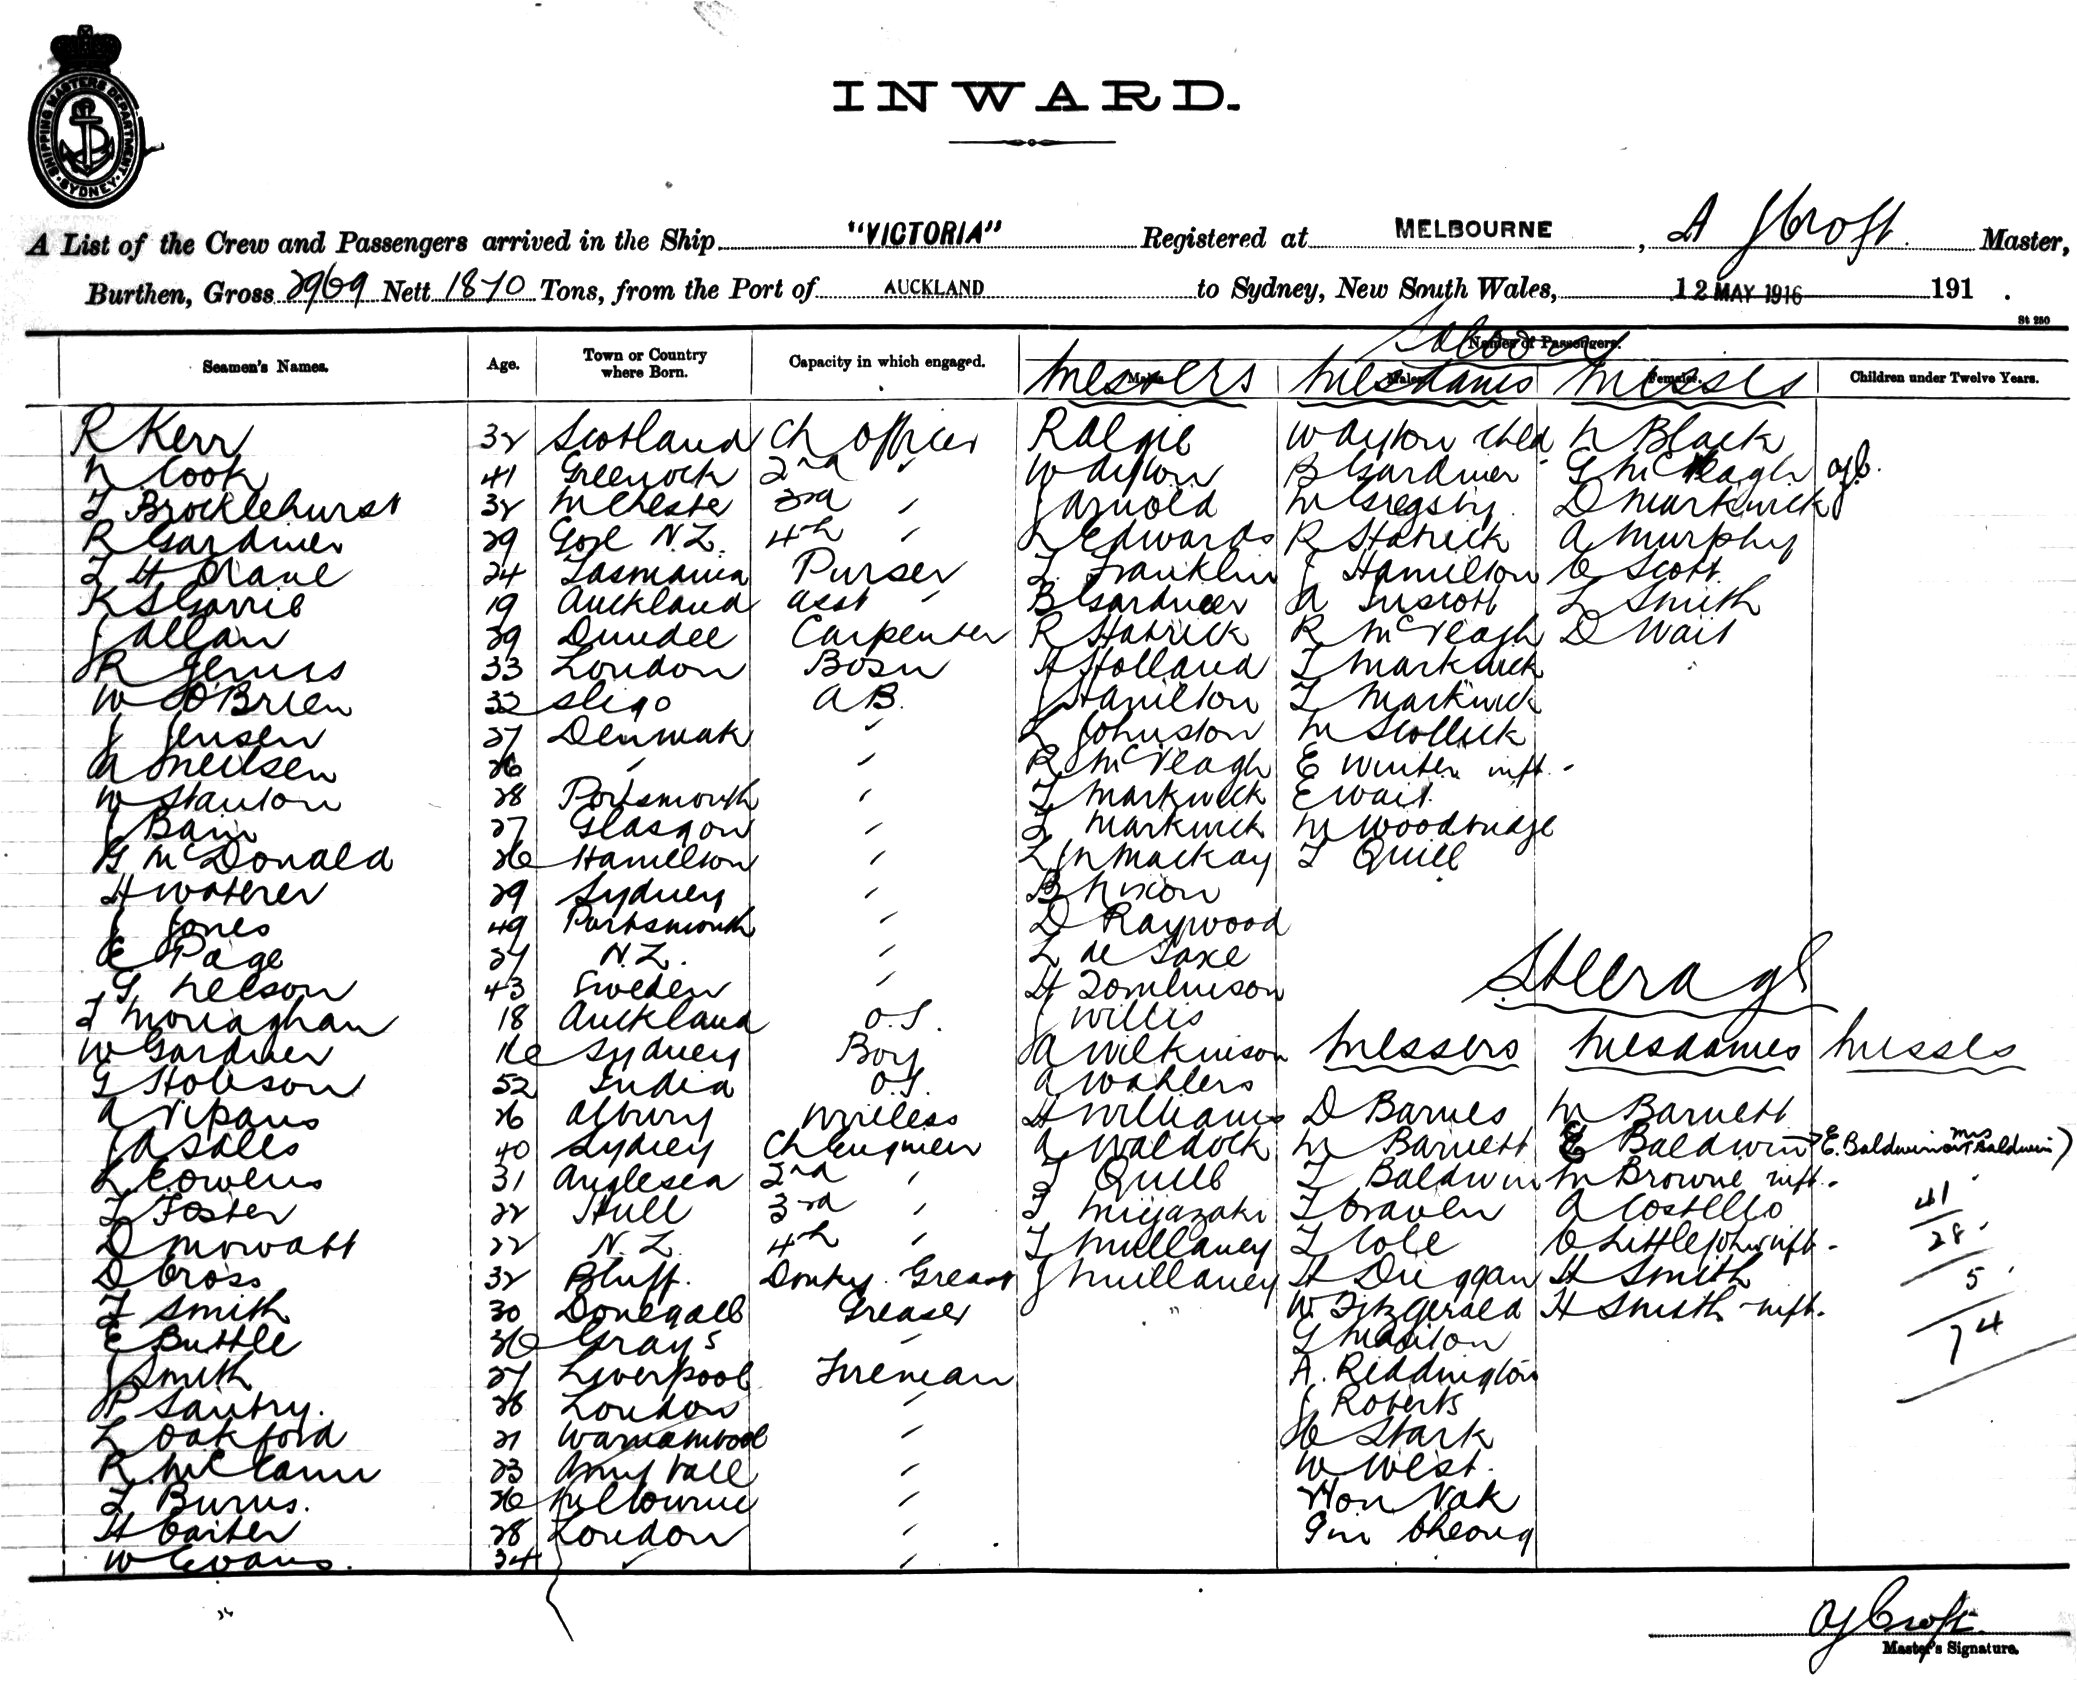 SHIPPING MASTERS DEPARTMENT SYDNEY
INWARD.
A List of the Crew and Passengers arrived in the Ship "VICTORIA" Registered at MELBOURNE, A J Croft. Master,
Burthen, Gross 2969 Nett 1870 Tons, from the Port of AUCKLAND to Sydney, New South Wales, 12 MAY 1916 191 .
St 250
Saloon
Names of Passengers.
Seamen's Names. Age. Town or Country where Born. Capacity in which engaged. Messrs Mesdames Misses Children under Twelve Years.
R Kerr 32 Scotland Ch Officer R Algie Wayton child N Black
N Cook 41 Greenock 2nd " Wayton B Gardiner G McVeagh
T Brocklehurst 32 Mcheste 3rd " J Arnold M Gregsby D Markwick
R Gardiner 29 Gore N.Z. 4th " L Edwards R Hatrick A Murphy
T H Drane 24 Tasmania Purser T. Franklin J Hamilton C Scott
K S Garrie 19 Auckland Asst " B Gardner A Inscott L Smith
J Allan 29 Dundee Carpenter R Hatrick R McVeagh D Wait
R Jervis 33 London Bosn H Holland T Markwick
W O'Brien 32 Sligo A B. J Hamilton T Markwick
J Jensen 27 Denmak " L Johnston M Scollick
A Neilsen 26 " " R McVeagh E Winter inft.
W Stanton 28 Portsmouth " T Markwick E Wait
J Bain 27 Glasgow " T Markwick M Woodbridge
G McDonald 26 Hamilton " L J N Mackay T Quill
H Waterer 29 Sydney " B Nixon
J Jones 49 Portsmouth " D Raywood
E Page 27 N.Z. " L de Saxe
G Nelson 43 Sweden " H Tomlinson
Steerage
T Monaghan 18 Auckland O.S. J Willis
W Gardner 16 Sydney Boy A Wilkinson Messers Mesdames Misses
G Hobson 52 India O.S. A Wahlers
A Vipans 26 Albury Wireless H Williams D Barnes M Barnett
J A Salles 40 Sydney Ch Engineer A Waldock M Barnett E Baldwin E. Baldwin (Mrs Baldwin)
L E Owens 31 Anglesea 2nd " T Quill T Baldwin M Browne inft.
T Foster 22 Hull 3rd " T Miyazaki T Craven A Costello 41
D Mowatt 22 N.Z. 4th " T Mullaney T Cole C Littlejohn inft. 28
D Cross 32 Bluff. Donky. Greasr J Mullaney H Duggan H Smith 5
T Smith 30 Donegall Greaser W Fitzgerald H Smith inft. 74
E Buttle 36 Grays " G Maniton
J Smith 27 Liverpool Fireman A. Reddington
P Santry. 28 London " J Roberts
L Oakford 21 Warnambool " C Stark
R. McCann 23 " W West.
T Burns. 26 Melbourne " Hon Nak
H Carter 28 London " Gin Cheong
W Evans. 34 " "
A J Croft.
Master's Signature.